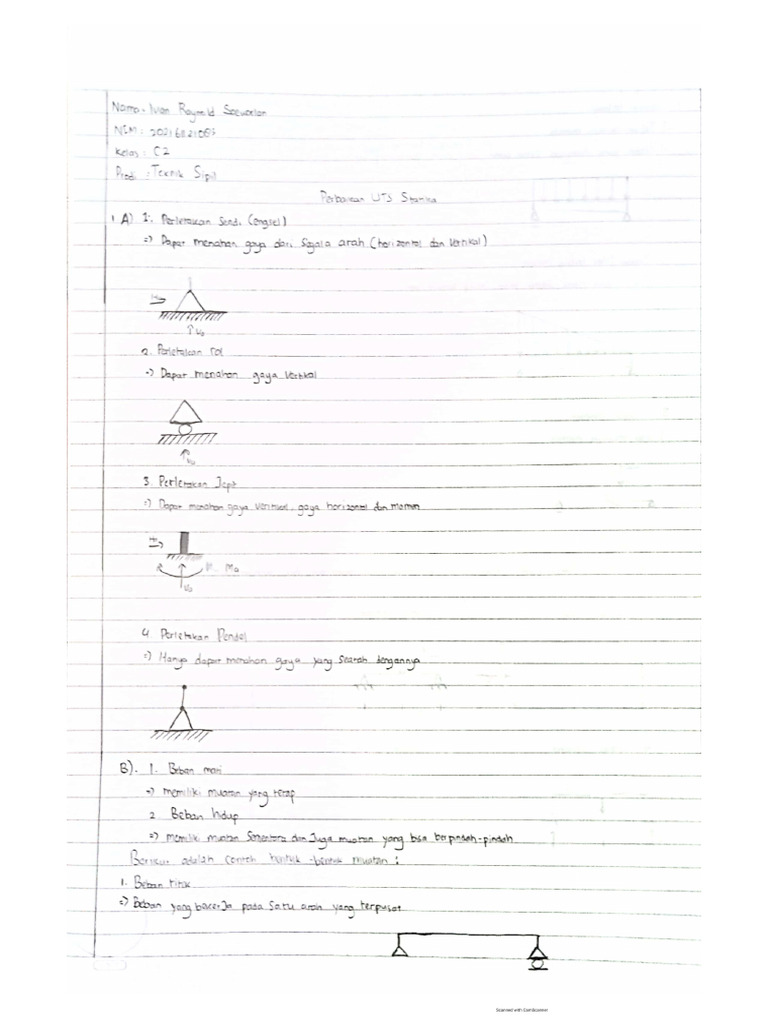 Nama : Ivan Raynold Soewarlan
NIM : 2021611210
Kelas : C2
Prodi : Teknik Sipil
Perbaikan UTS Statika
1. A) 1. Perletakan Sendi (engsel)
=) Dapat menahan gaya dari Segala arah (horizontal dan Vertikal)
Vo
2. Perletakan rol
=) Dapat menahan gaya Vertikal
Vo
3. Perletakan Jepit
=) Dapat menahan gaya Vertikal, gaya horizontal dan momen
Mo
Vo
4 Perletakan Pendel
=) Hanya dapat menahan gaya yang Searah dengannya
B). 1. Beban mati
=) memiliki muatan yang tetap
2 Beban hidup
=) memiliki muatan Sementara dan Juga muatan yang bisa berpindah-pindah
Berikut adalah contoh bentuk-bentuk muatan :
1. Beban titik
=) Beban yang bekerja pada Satu arah yang terpusat
Scanned with CamScanner